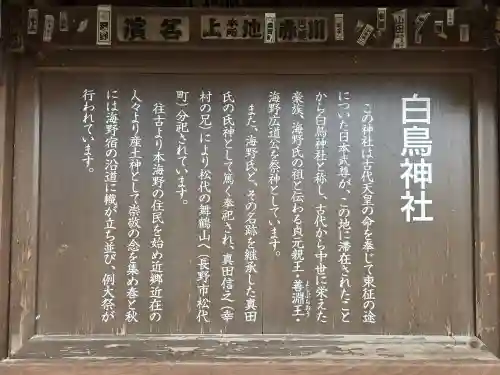 白鳥神社
この神社は古代天皇の命を奉じて東征の途
についた日本武尊が、この地に滞在されたこと
から白鳥神社と称し、古代から中世に栄えた
豪族、海野氏の祖と伝わる貞元親王・善淵王・
海野広道公を祭神としています。
また、海野氏と、その名跡を継承した真田
氏の氏神として篤く奉祀され、真田信之(幸
村の兄)により松代の舞鶴山へ(長野市松代
町)分祀されています。
往古より本海野の住民を始め近郷近在の
人々より産土神として崇敬の念を集め春と秋
には海野宿の沿道に幟が立ち並び、例大祭が
行われています。